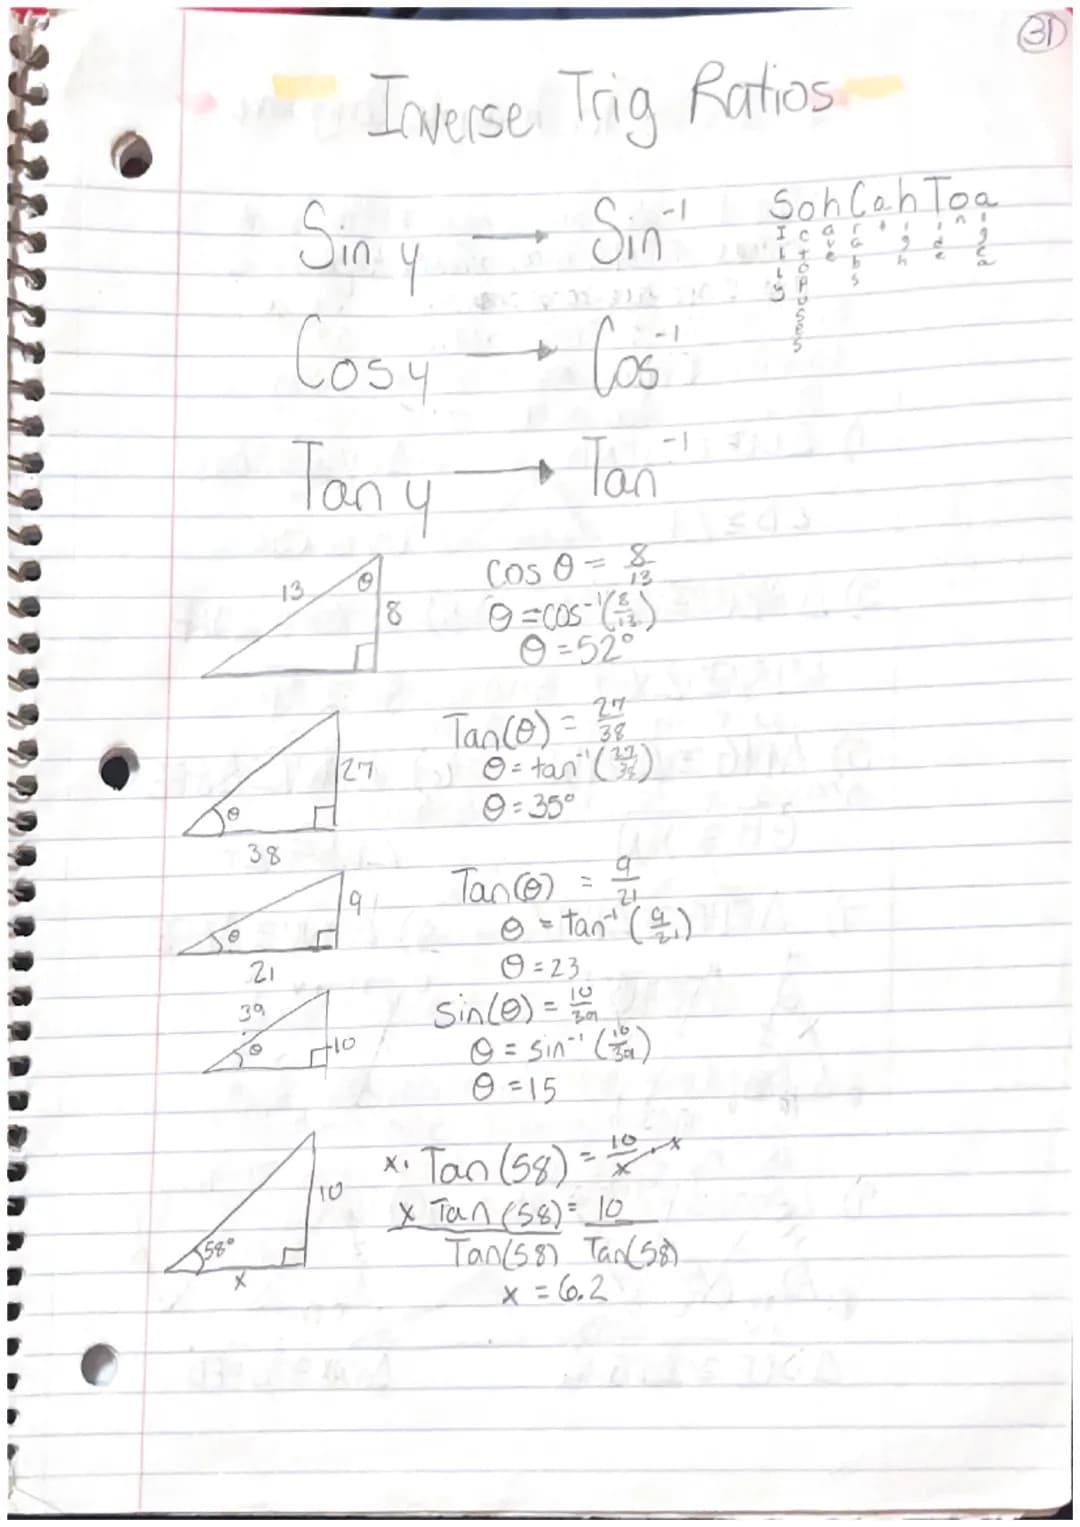 31
Inverse Trig Ratios
Sin y → Sin⁻¹
SohCahToa
Cos y → Cos⁻¹
Tan y → Tan⁻¹
13 θ 8
cos θ = 8/13
θ = cos⁻¹(8/13)
θ = 52°
27 θ 38
Tan(θ) = 27/38
θ = tan⁻¹(27/38)
θ = 35°
9 θ 21
Tan(θ) = 9/21
θ = tan⁻¹(9/21)
θ = 23
39 θ 10
sin(θ) = 10/39
θ = sin⁻¹(10/39)
θ = 15
10 58° x
x · Tan(58) = 10/x · x
x Tan(58)/Tan(58) = 10/Tan(58)
x = 6.2